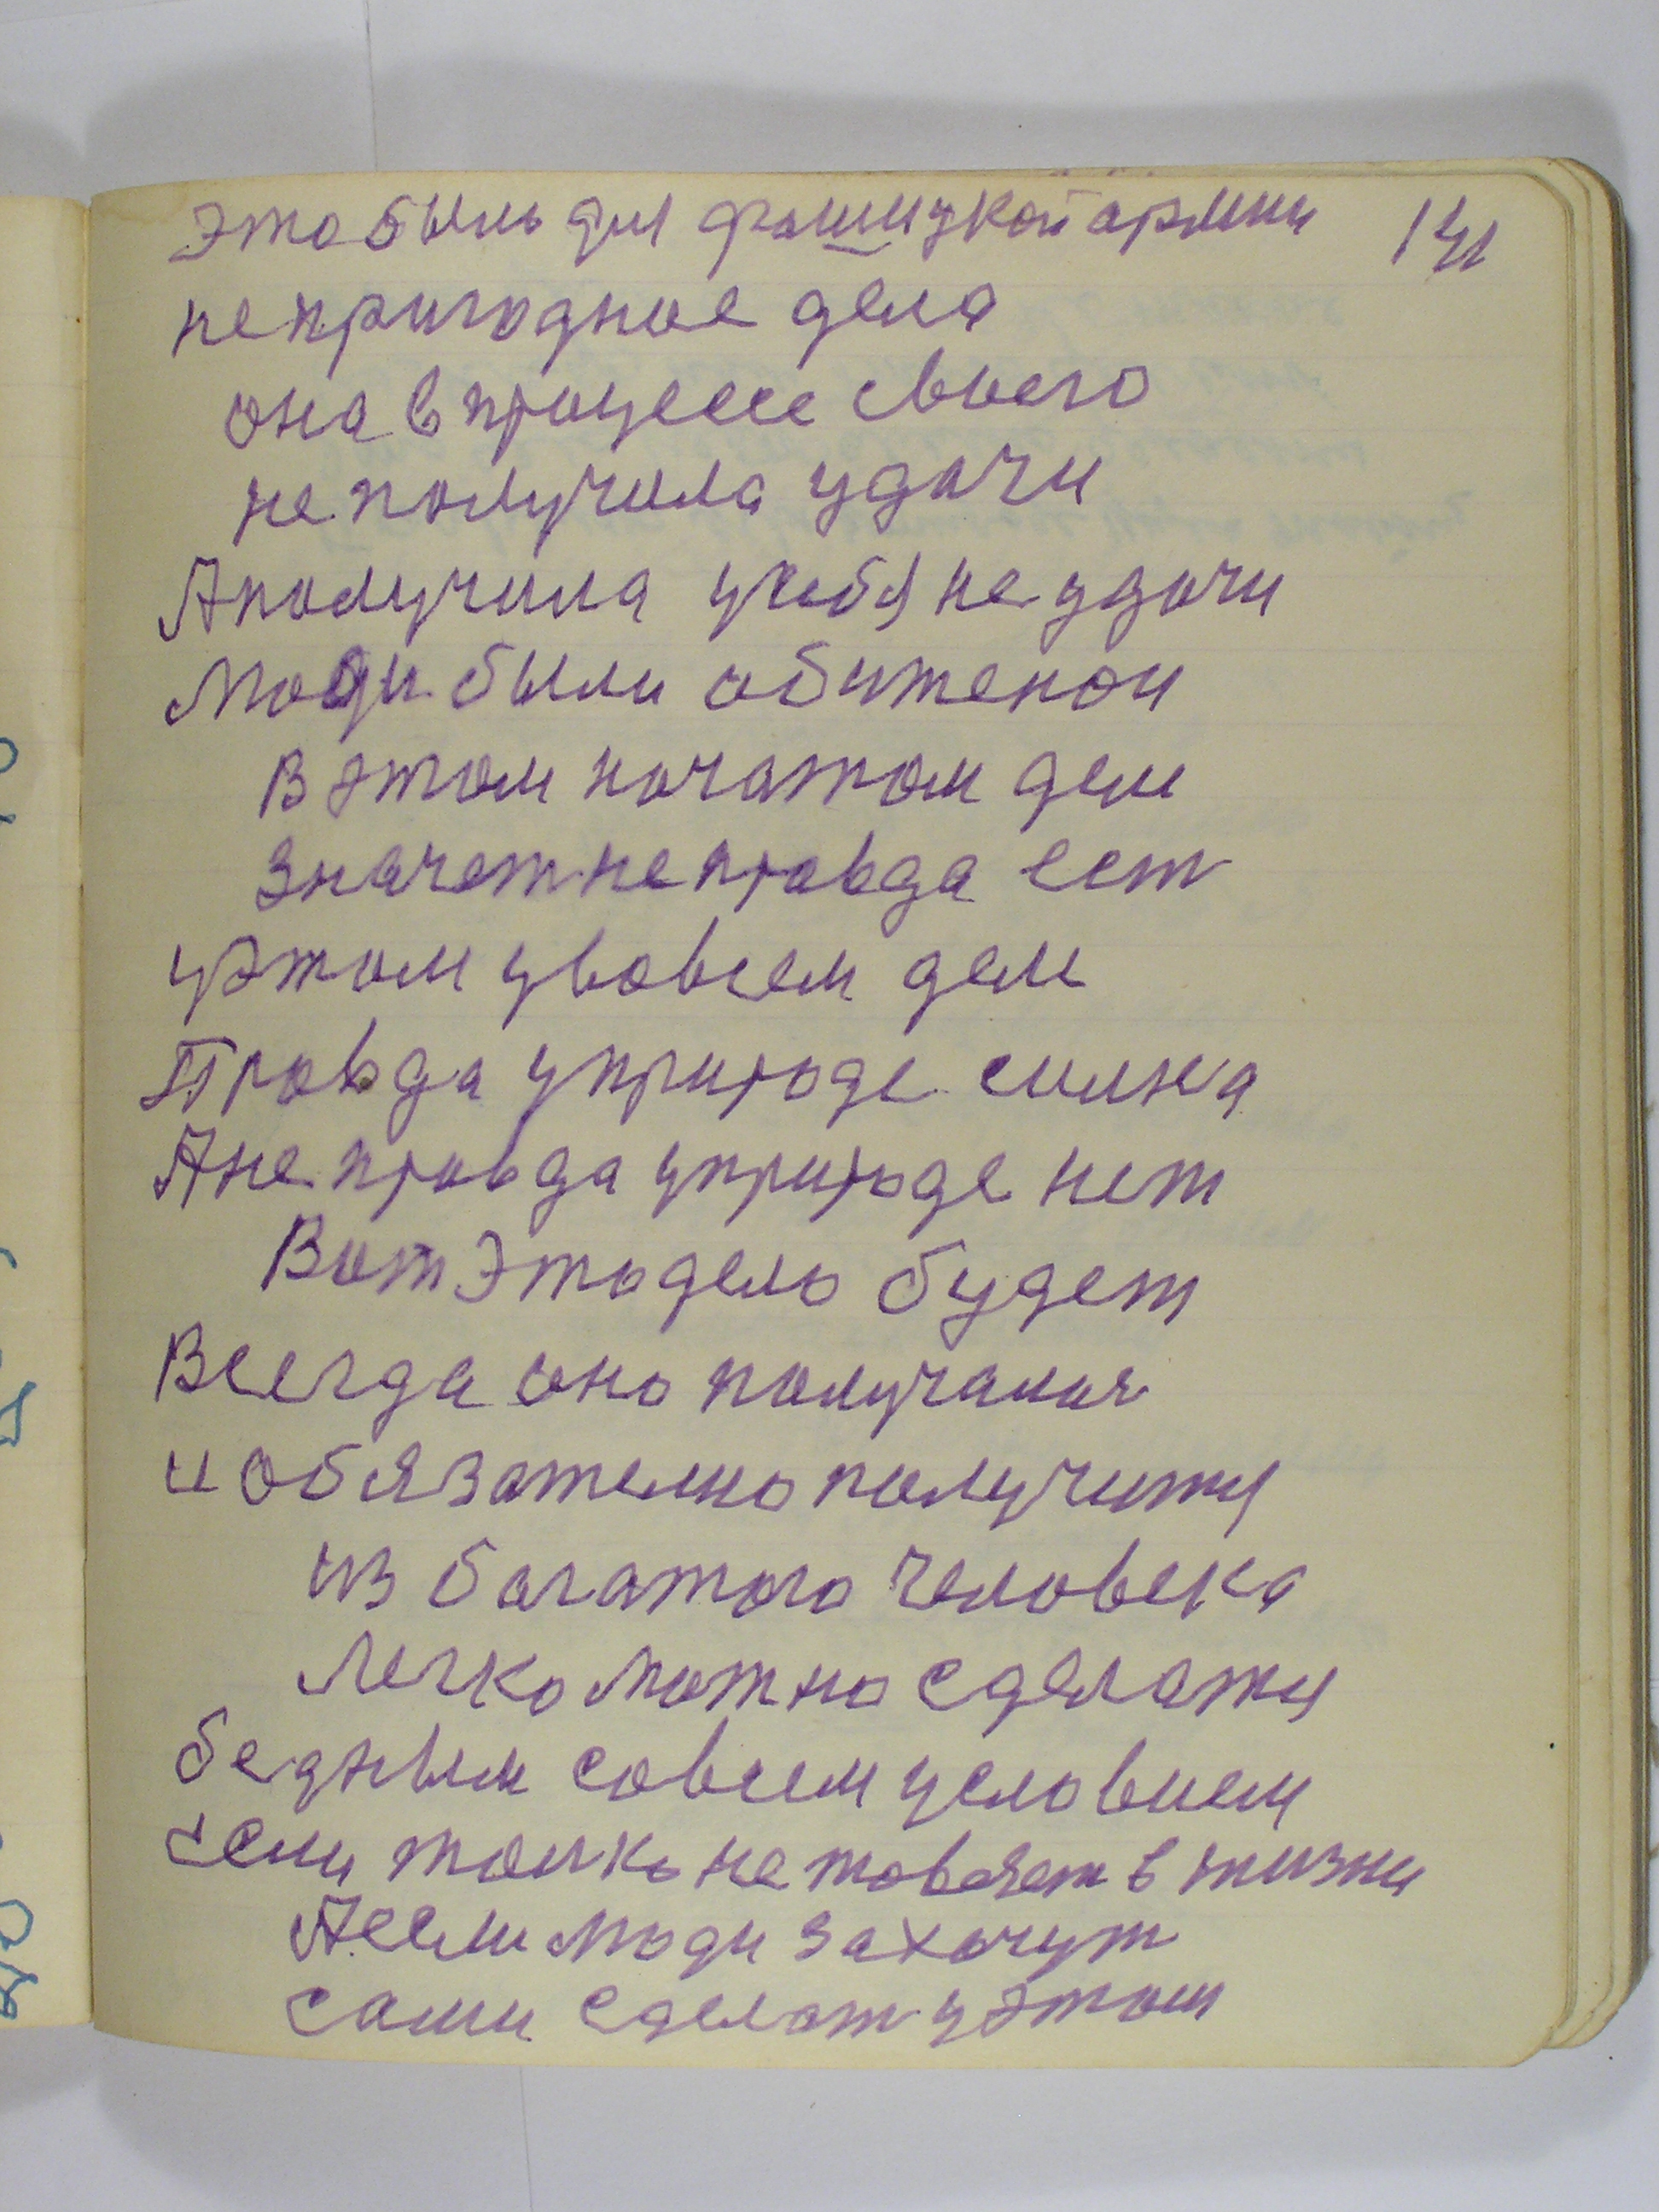 это быль для фашицкой армии
непригодное дела
она в процессе своего
не получила удачи
А получила у себя не удачи
Люди были обиженои
В этом начатом деле
Значет не правда ест
у этом у вовсем деле
Правда у природе силна
А не правда у природе нет
Вот это дело будет
Всегда оно получалося
и обязателно получити
из богатого человека
Легко можно сделати
бедным совсем условием
если толко не повезет в жизни
А если люди захочут
сами сделат у этом